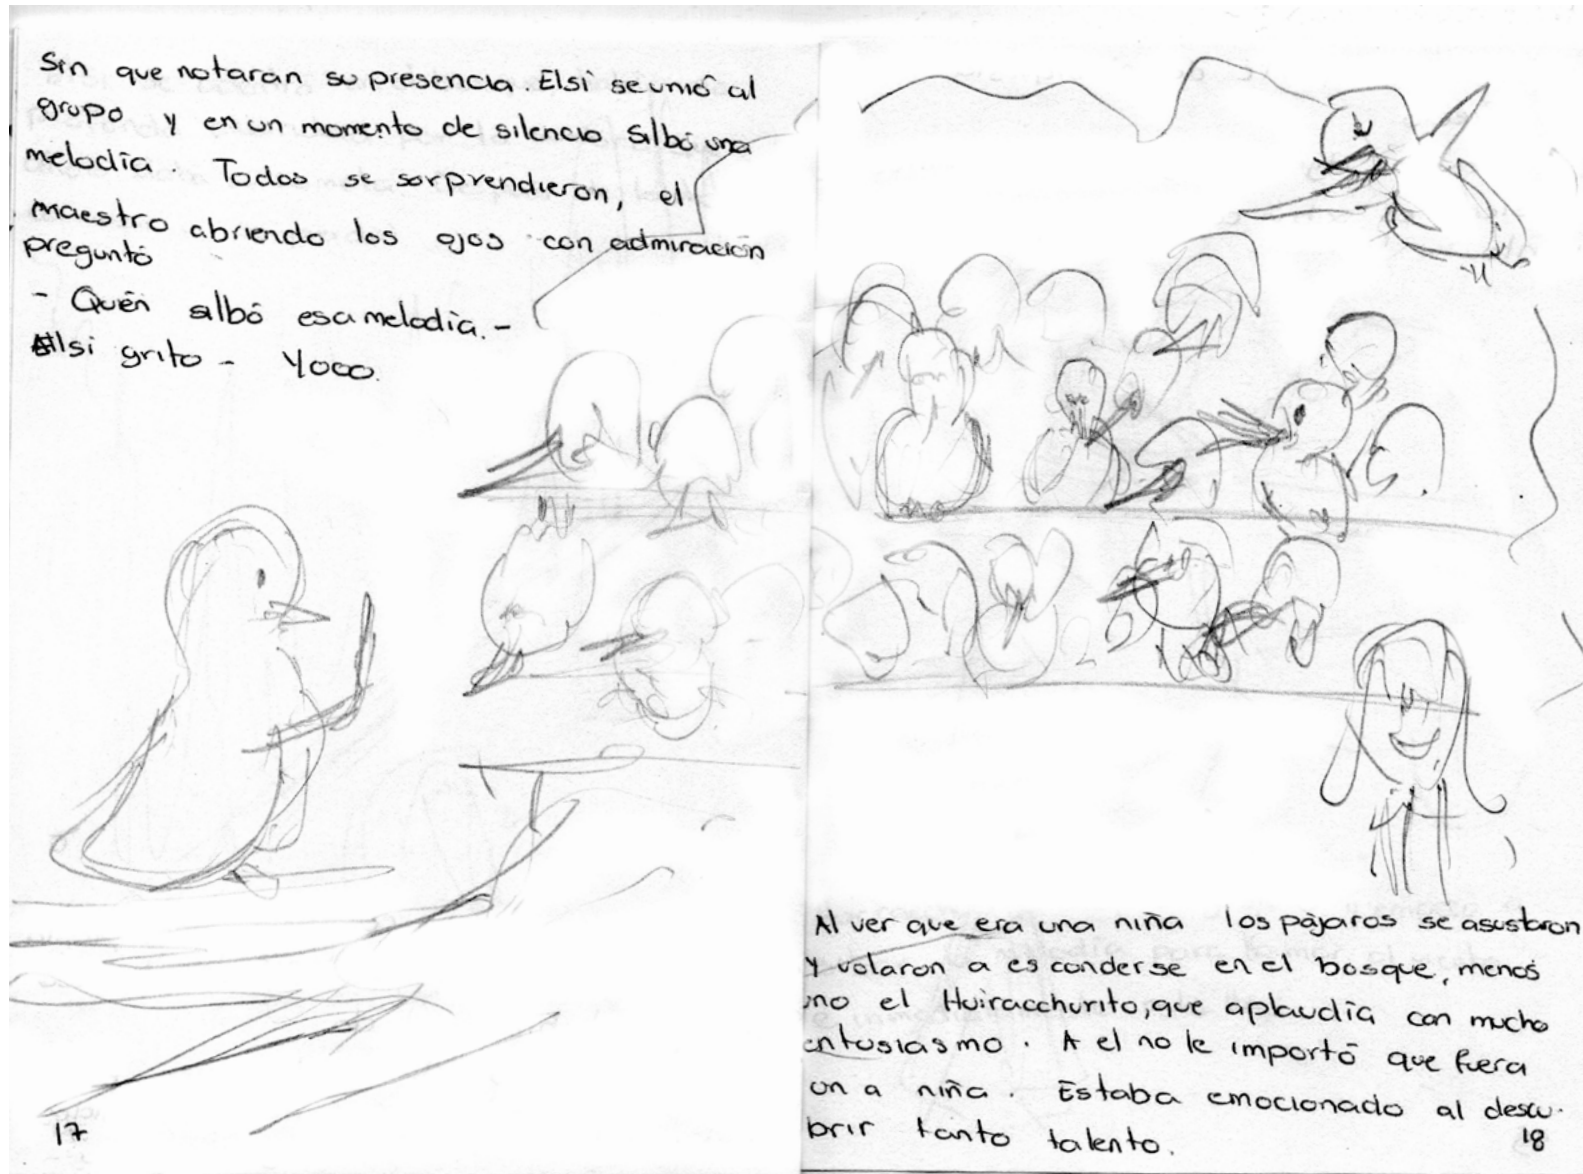 Sin que notaran su presencia. Elsi se unió al
grupo y en un momento de silencio silbó una
melodía. Todos se sorprendieron, el
maestro abriendo los ojos con admiración
preguntó
- Quién silbó esa melodía. -
Elsi grito - Yooo.
17
Al ver que era una niña los pájaros se asustaron
y volaron a esconderse en el bosque, menos
uno el Huiracchurito, que aplaudía con mucho
entusiasmo. A el no le importó que fuera
un a niña. Estaba emocionado al descu-
brir tanto talento.
18